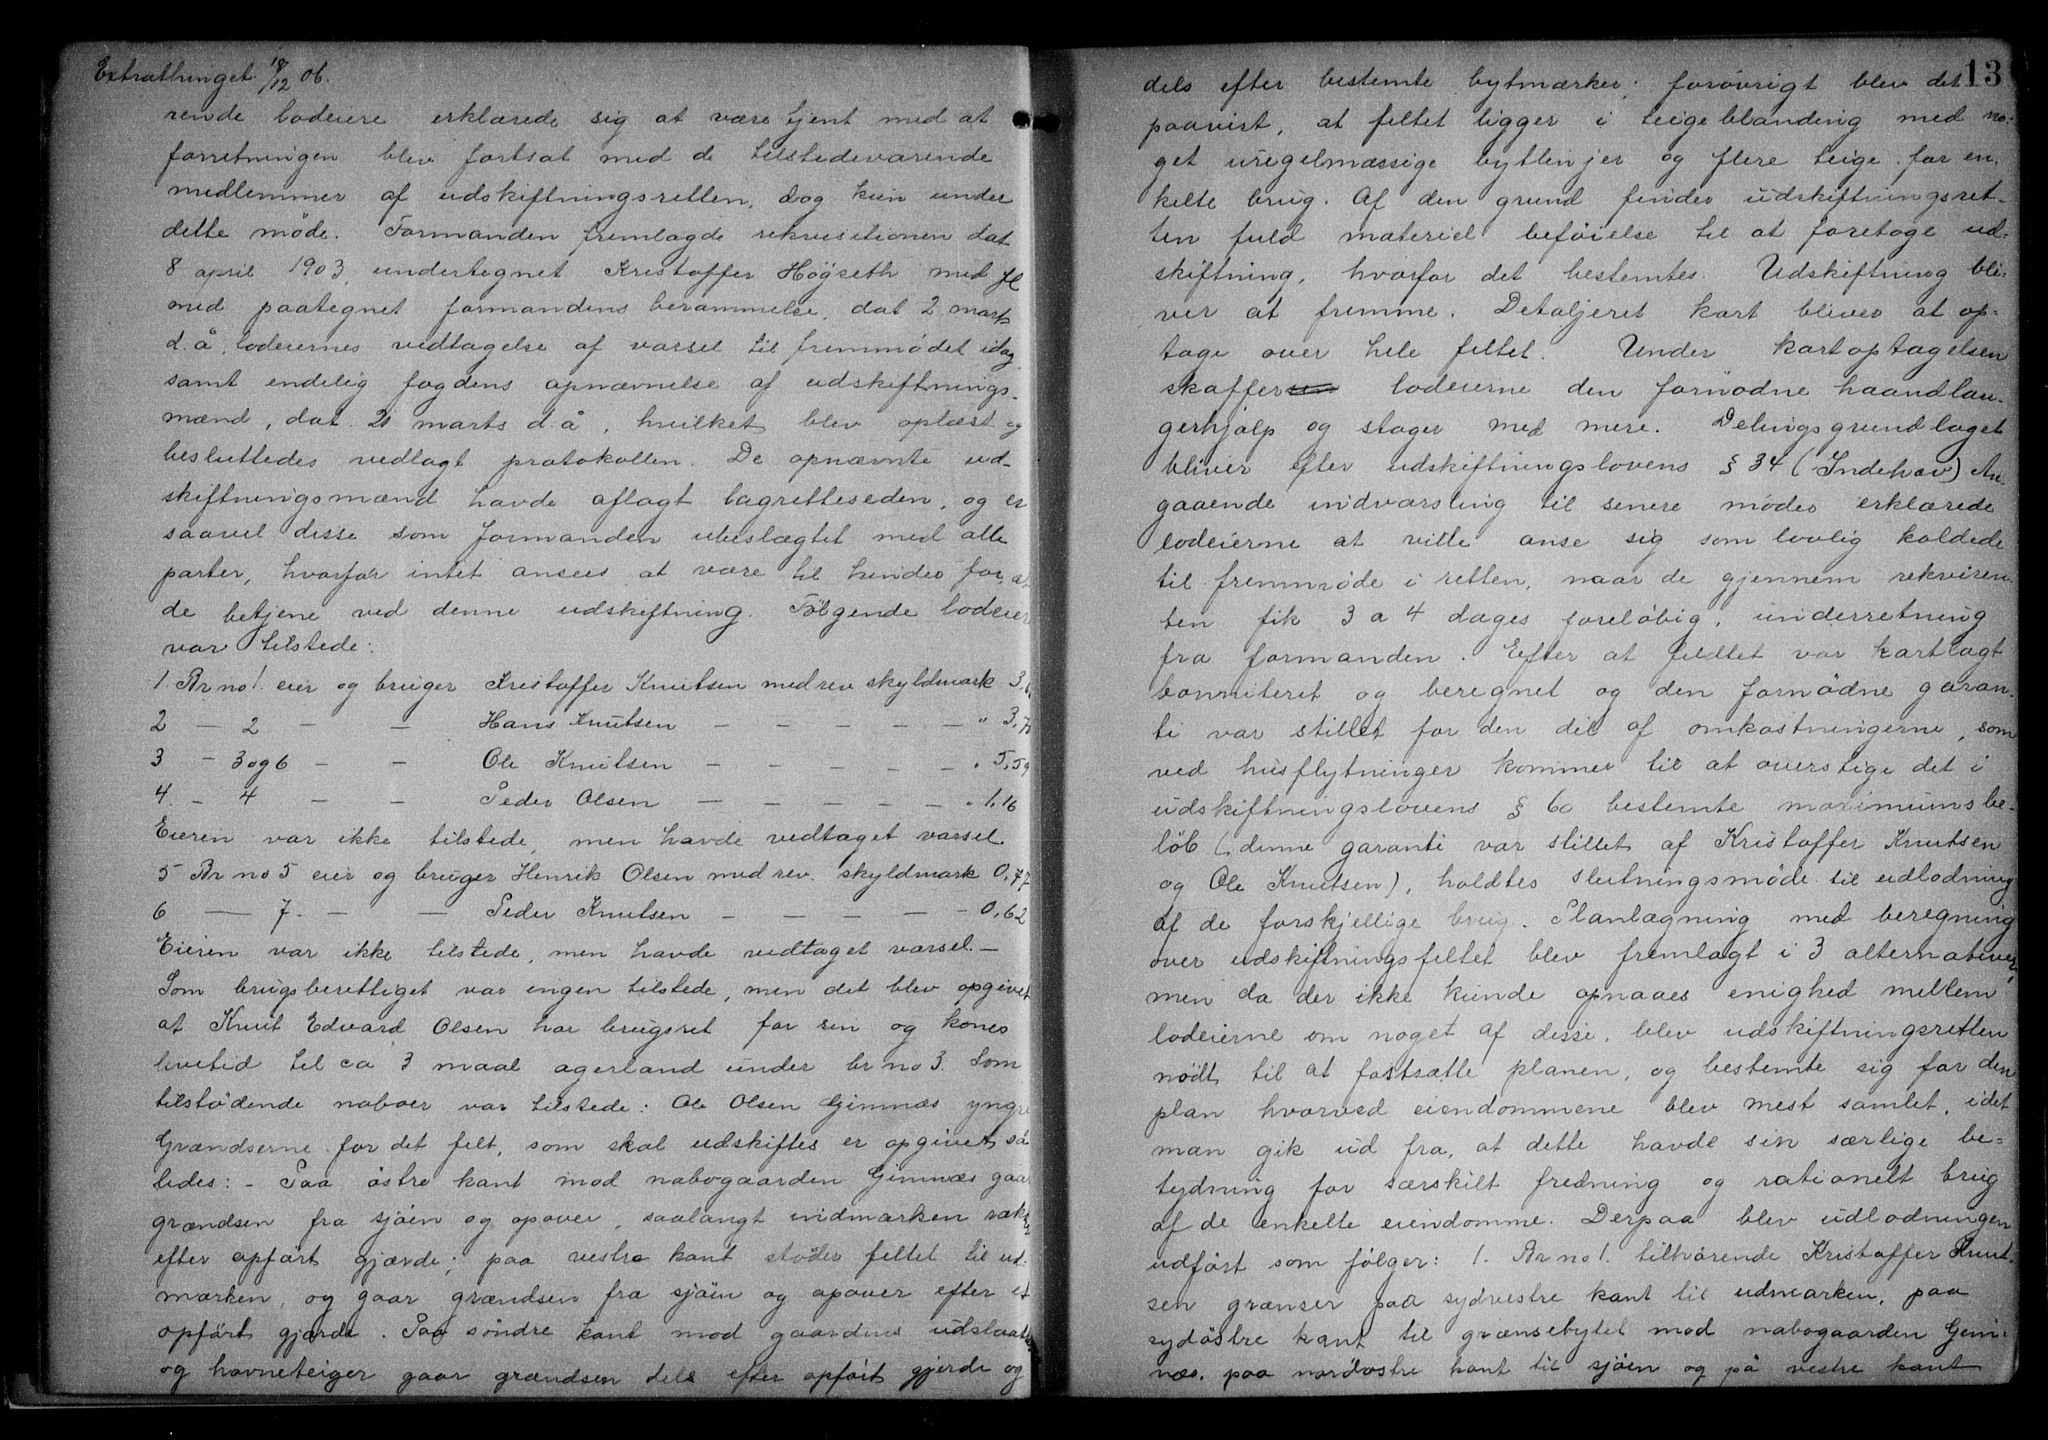 Extrathinget 18/12 06.
rende lodeiere erklærede sig at være tjent med at
forretningen blev fortsat med de tilstedeværende
medlemmer af udskiftningsretten, dog kun under
dette møde. Formanden fremlagde rekvisitionen dat
8 april 1903, undertegnet Kristoffer Høgseth med fl
med paategnet formandens berammelse, dat 2 marts
d. å, lodeiernes vedtagelse af varsel til fremmødet idag
samt endelig fogdens opnævnelse af udskiftnings-
mænd, dat. 21 marts d. å, hvilket blev oplæst og
besluttedes vedlagt protokollen. De opnævnte ud-
skiftningsmænd havde aflagt lagretteseden, og er
saavel disse som formanden ubeslægtet med alle
parter, hvorfor intet ansees at være til hinder for, at
de betjene ved denne udskiftning. Følgende lodeier
var tilstede:
1. Br no 1. eier og bruger Kristoffer Knutsen med rev skyldmark 3,
2 — 2 — — Hans Knutsen — — — — — " 3,
3 — 3 og 6 — — Ole Knutsen — — — — — " 5,59
4. — 4 — — Peder Olsen — — — — — " 1,16
Eieren var ikke tilstede, men havde vedtaget varsel.
5 Br no 5 eier og bruger Henrik Olsen med rev. skyldmark 0,77
6 — 7. — — Peder Knutsen — — — — — 0,62
Eieren var ikke tilstede, men havde vedtaget varsel. —
Som brugsberettiget var ingen tilstede, men det blev opgivet
at Knut Edvard Olsen har brugsret for sin og kones
levetid til ca 3 maal agerland under br no 3. Som
tilstødende naboer var tilstede: Ole Olsen Gimnæs yngre
Grændserne for det felt, som skal udskiftes er opgivet så
ledes: - Paa østre kant mod nabogaarden Gimnæs gaar
grændsen fra sjøen og opover, saalangt indmarken rækker
efter opført gjærde; paa vestre kant støder feltet til ud-
marken, og gaar grændsen fra sjøen og opover efter et
opført gjærde. Paa søndre kant mod gaardens udslaatter
og havneteiger gaar grændsen dels efter opført gjerde og
13
dels efter bestemte bytmærker; forøvrigt blev det
paavist, at feltet ligger i teigeblanding med no-
get uregelmæssige bytlinjer og flere teige for en-
kelte brug. Af den grund finder udskiftningsret-
ten fuld materiel beføielse til at foretage ud-
skiftning, hvorfor det bestemtes. Udskiftning bli-
ver at fremme. Detaljeret kart bliver at op-
tage over hele feltet. Under kartoptagelsen
skaffer lodeierne den fornødne haandlan-
gerhjælp og stager med mere. Delingsgrundlaget
bliver efter udskiftningslovens § 34 (Indehav) An-
gaaende indvarsling til senere møder erklærede
lodeierne at ville anse sig som lovlig kaldede
til fremmøde i retten, naar de gjennem rekviren-
ten fik 3 a 4 dages foreløbig underretning
fra formanden. Efter at feldtet var kartlagt
bonniteret og beregnet og den fornødne garan-
ti var stillet for den del af omkostningerne, som
ved husflytninger kommer til at overstige det i
udskiftningslovens § 60 bestemte maximumsbe-
løb (denne garanti var stillet af Kristoffer Knutsen
og Ole Knutsen), holdtes slutningsmøde til udlodning
af de forskjellige brug. Planlægning med beregning
over udskiftningsfeltet blev fremlagt i 3 alternativer,
men da der ikke kunde opnaaes enighed mellem
lodeierne om noget af disse, blev udskiftningsretten
nødt til at fastsætte planen, og bestemte sig for den
plan hvorved eiendommene blev mest samlet, idet
man gik ud fra, at dette havde sin særlige be-
tydning for særskilt fredning og rationelt brug
af de enkelte eiendomme. Derpaa blev udlodningen
udført som følger: 1. Br no 1. tilhørende Kristoffer Knut-
sen grænser paa sydvestre kant til udmarken, paa
sydøstre kant til grænsebytet mod nabogaarden Gim-
næs, paa nordøstre kant til sjøen og på vestre kant